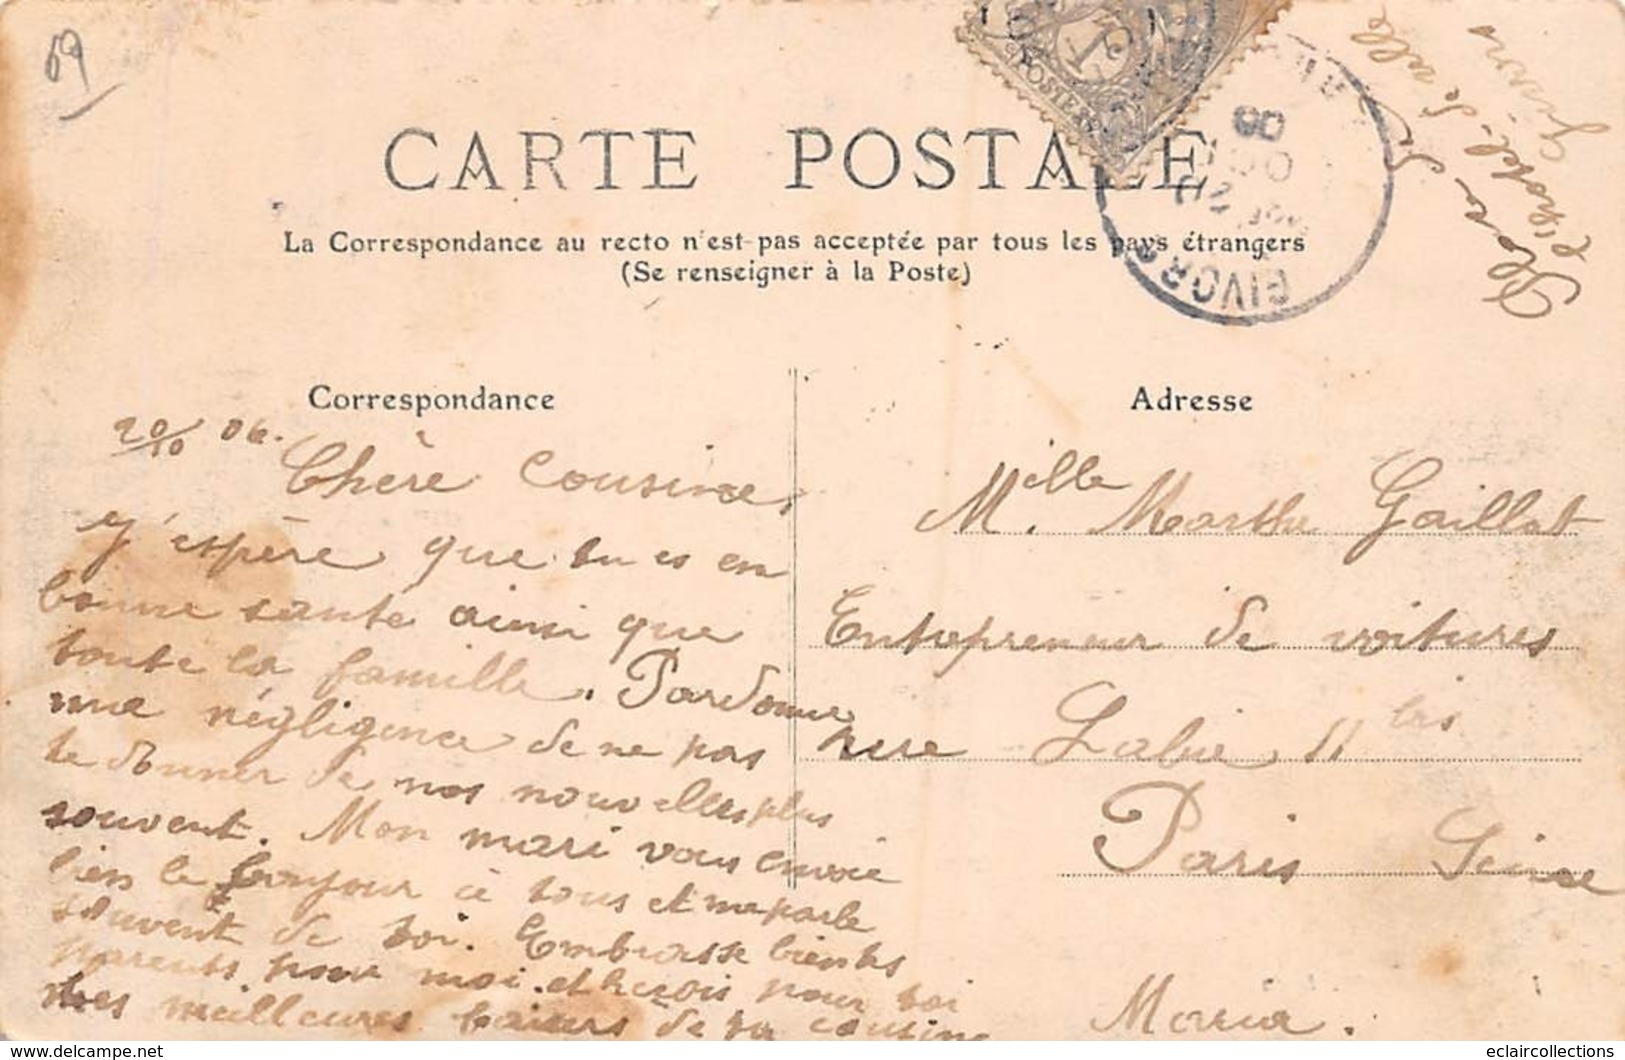 69
CARTE POSTALE
La Correspondance au recto n'est pas acceptée par tous les pays étrangers
(Se renseigner à la Poste)
POSTES
GIVORS
Place de
l'hotel de ville
Givors
Correspondance
Adresse
20/10 06.
Chère Cousine,
J'espère que tu es en
bonne sante ainsi que
toute la famille. Pardonne
une négligence de ne pas
te donner de nos nouvelles plus
souvent. Mon mari vous envoie
bien le bonjour à tous et me parle
souvent de toi. Embrasse bien tes
parents pour moi. et reçois pour toi
mes meilleures baisers de ta cousine
Maria.
Melle. Marthe Gaillat
Entrepreneur de voitures
rue Labie 11 bis
Paris Seine
eclaircollections